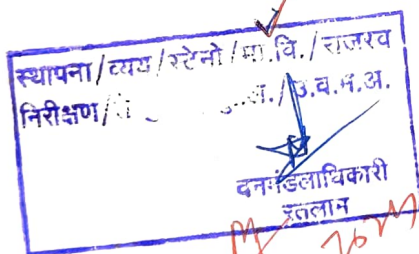 स्थापना/व्यय/स्टेनो/मा.वि./राजस्व
निरीक्षण/ /उ.व.म.अ.
वनमंडलाधिकारी
रतलाम